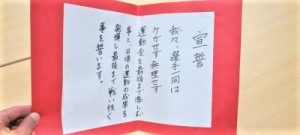 宣誓
我々、選手一同は
ケガせず無理せず
運動会を最後まで楽しむ
事と、日頃の運動の成果を
発揮し最後まで戦い抜く
事を誓います。